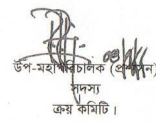 উপ-মহাপরিচালক (প্রশাসন)
সদস্য
ক্রয় কমিটি।